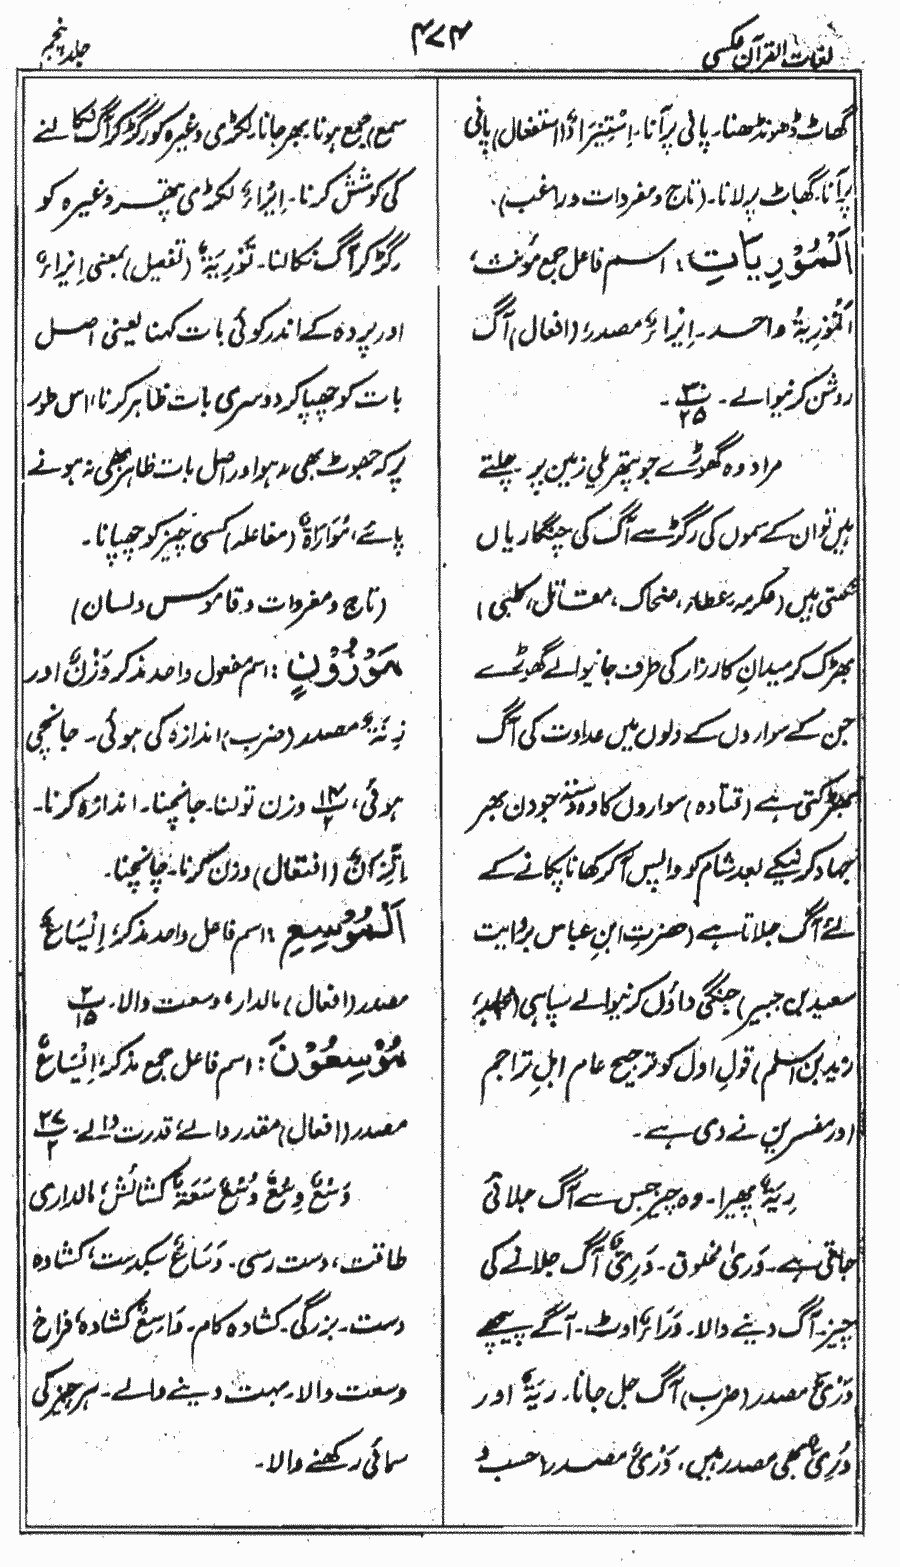 لغات القرآن عکسی
۴۷۴
جلد پنجم
گھاٹ ڈھونڈھنا۔ پانی پر آنا۔ اِسْتِیْرَادٌ (استفعال) پانی
پر آنا۔ گھاٹ پر لانا۔ (تاج و مفردات و راغب)۔
اَلْمُوْرِیَاتِ: اسم فاعل جمع مؤنث،
اَلْمُوْرِیَۃُ واحد۔ اِیْرَاءٌ مصدر؛ (افعال) آگ
روشن کرنیوالے۔ ۳۰/۲۵۔
مراد وہ گھوڑے جو پتھریلی زمین پر چلتے
ہیں تو ان کے سموں کی رگڑ سے آگ کی چنگاریاں
نکلتی ہیں (عکرمہ، عطاء، ضحاک، مقاتل، کلبی)
بھڑک کر میدانِ کارزار کی طرف جانیوالے گھوڑے
جن کے سواروں کے دلوں میں عداوت کی آگ
بھڑکتی ہے (قتادہ) سواروں کا وہ دستہ جو دن بھر
جہاد کرنیکے بعد شام کو واپس آکر کھانا پکانے کے
لئے آگ جلاتا ہے (حضرت ابنِ عباس بروایت
سعید بن جبیر) جنگی داؤں کرنیوالے سپاہی (مجاہد،
زید بن اسلم) قولِ اول کو ترجیح عام اہلِ تراجم
اور مفسرین نے دی ہے۔
رِیَۃٌ پھیپڑا۔ وہ چیز جس سے آگ جلائی
جاتی ہے۔ وَریٰ مخلوق۔ وَرِیٌّ آگ جلانے کی
چیز۔ آگ دینے والا۔ وَرَاءٌ اوٹ۔ آگے پیچھے
وَرْیٌ مصدر (ضرب) آگ جل جانا۔ رِیَۃٌ اور
وُرِیٌّ بھی مصدر ہیں، وَرْیٌ مصدر (حسب و
سمع) جمع ہونا۔ بھر جانا۔ لکڑی وغیرہ کو رگڑ کر آگ نکالنے
کی کوشش کرنا۔ اِیْرَاءٌ لکڑی پتھر وغیرہ کو
رگڑ کر آگ نکالنا۔ تَوْرِیَۃٌ (تفعیل) بمعنی اِیْرَاءٌ
اور پردہ کے اندر کوئی بات کہنا یعنی اصل
بات کو چھپا کر دوسری بات ظاہر کرنا، اس طور
پر کہ جھوٹ بھی نہ ہو اور اصل بات ظاہر بھی نہ ہونے
پائے، مُوَارَاۃٌ (مفاعلہ) کسی چیز کو چھپانا۔
(تاج و مفردات و قاموس و لسان)
مَوْزُوْنٍ: اسم مفعول واحد مذکر وَزْنٌ اور
زِنَۃٌ مصدر (ضرب) اندازہ کی ہوئی۔ جانچی
ہوئی، ۱۴/۲ وزن تولنا۔ جانچنا۔ اندازہ کرنا۔
اِتِّزَانٌ (افتعال) وزن کرنا۔ جانچنا۔
اَلْمُوْسِعِ: اسم فاعل واحد مذکر؛ اِیْسَاعٌ
مصدر (افعال) مالدار، وسعت والا۔ ۲/۱۵
مُوْسِعُوْنَ: اسم فاعل جمع مذکر؛ اِیْسَاعٌ
مصدر (افعال) مقدر والے، قدرت والے۔ ۲۷/۲
وَسْعٌ وِسْعٌ وُسْعٌ سَعَۃٌ کشائش، مالداری
طاقت، دست رسی۔ وَسَاعٌ سبکدست، کشادہ
دست۔ بزرگی۔ کشادہ کام۔ وَاسِعٌ کشادہ، فراخ
وسعت والا۔ بہت دینے والے۔ ہر چیز کی
سمائی رکھنے والا۔